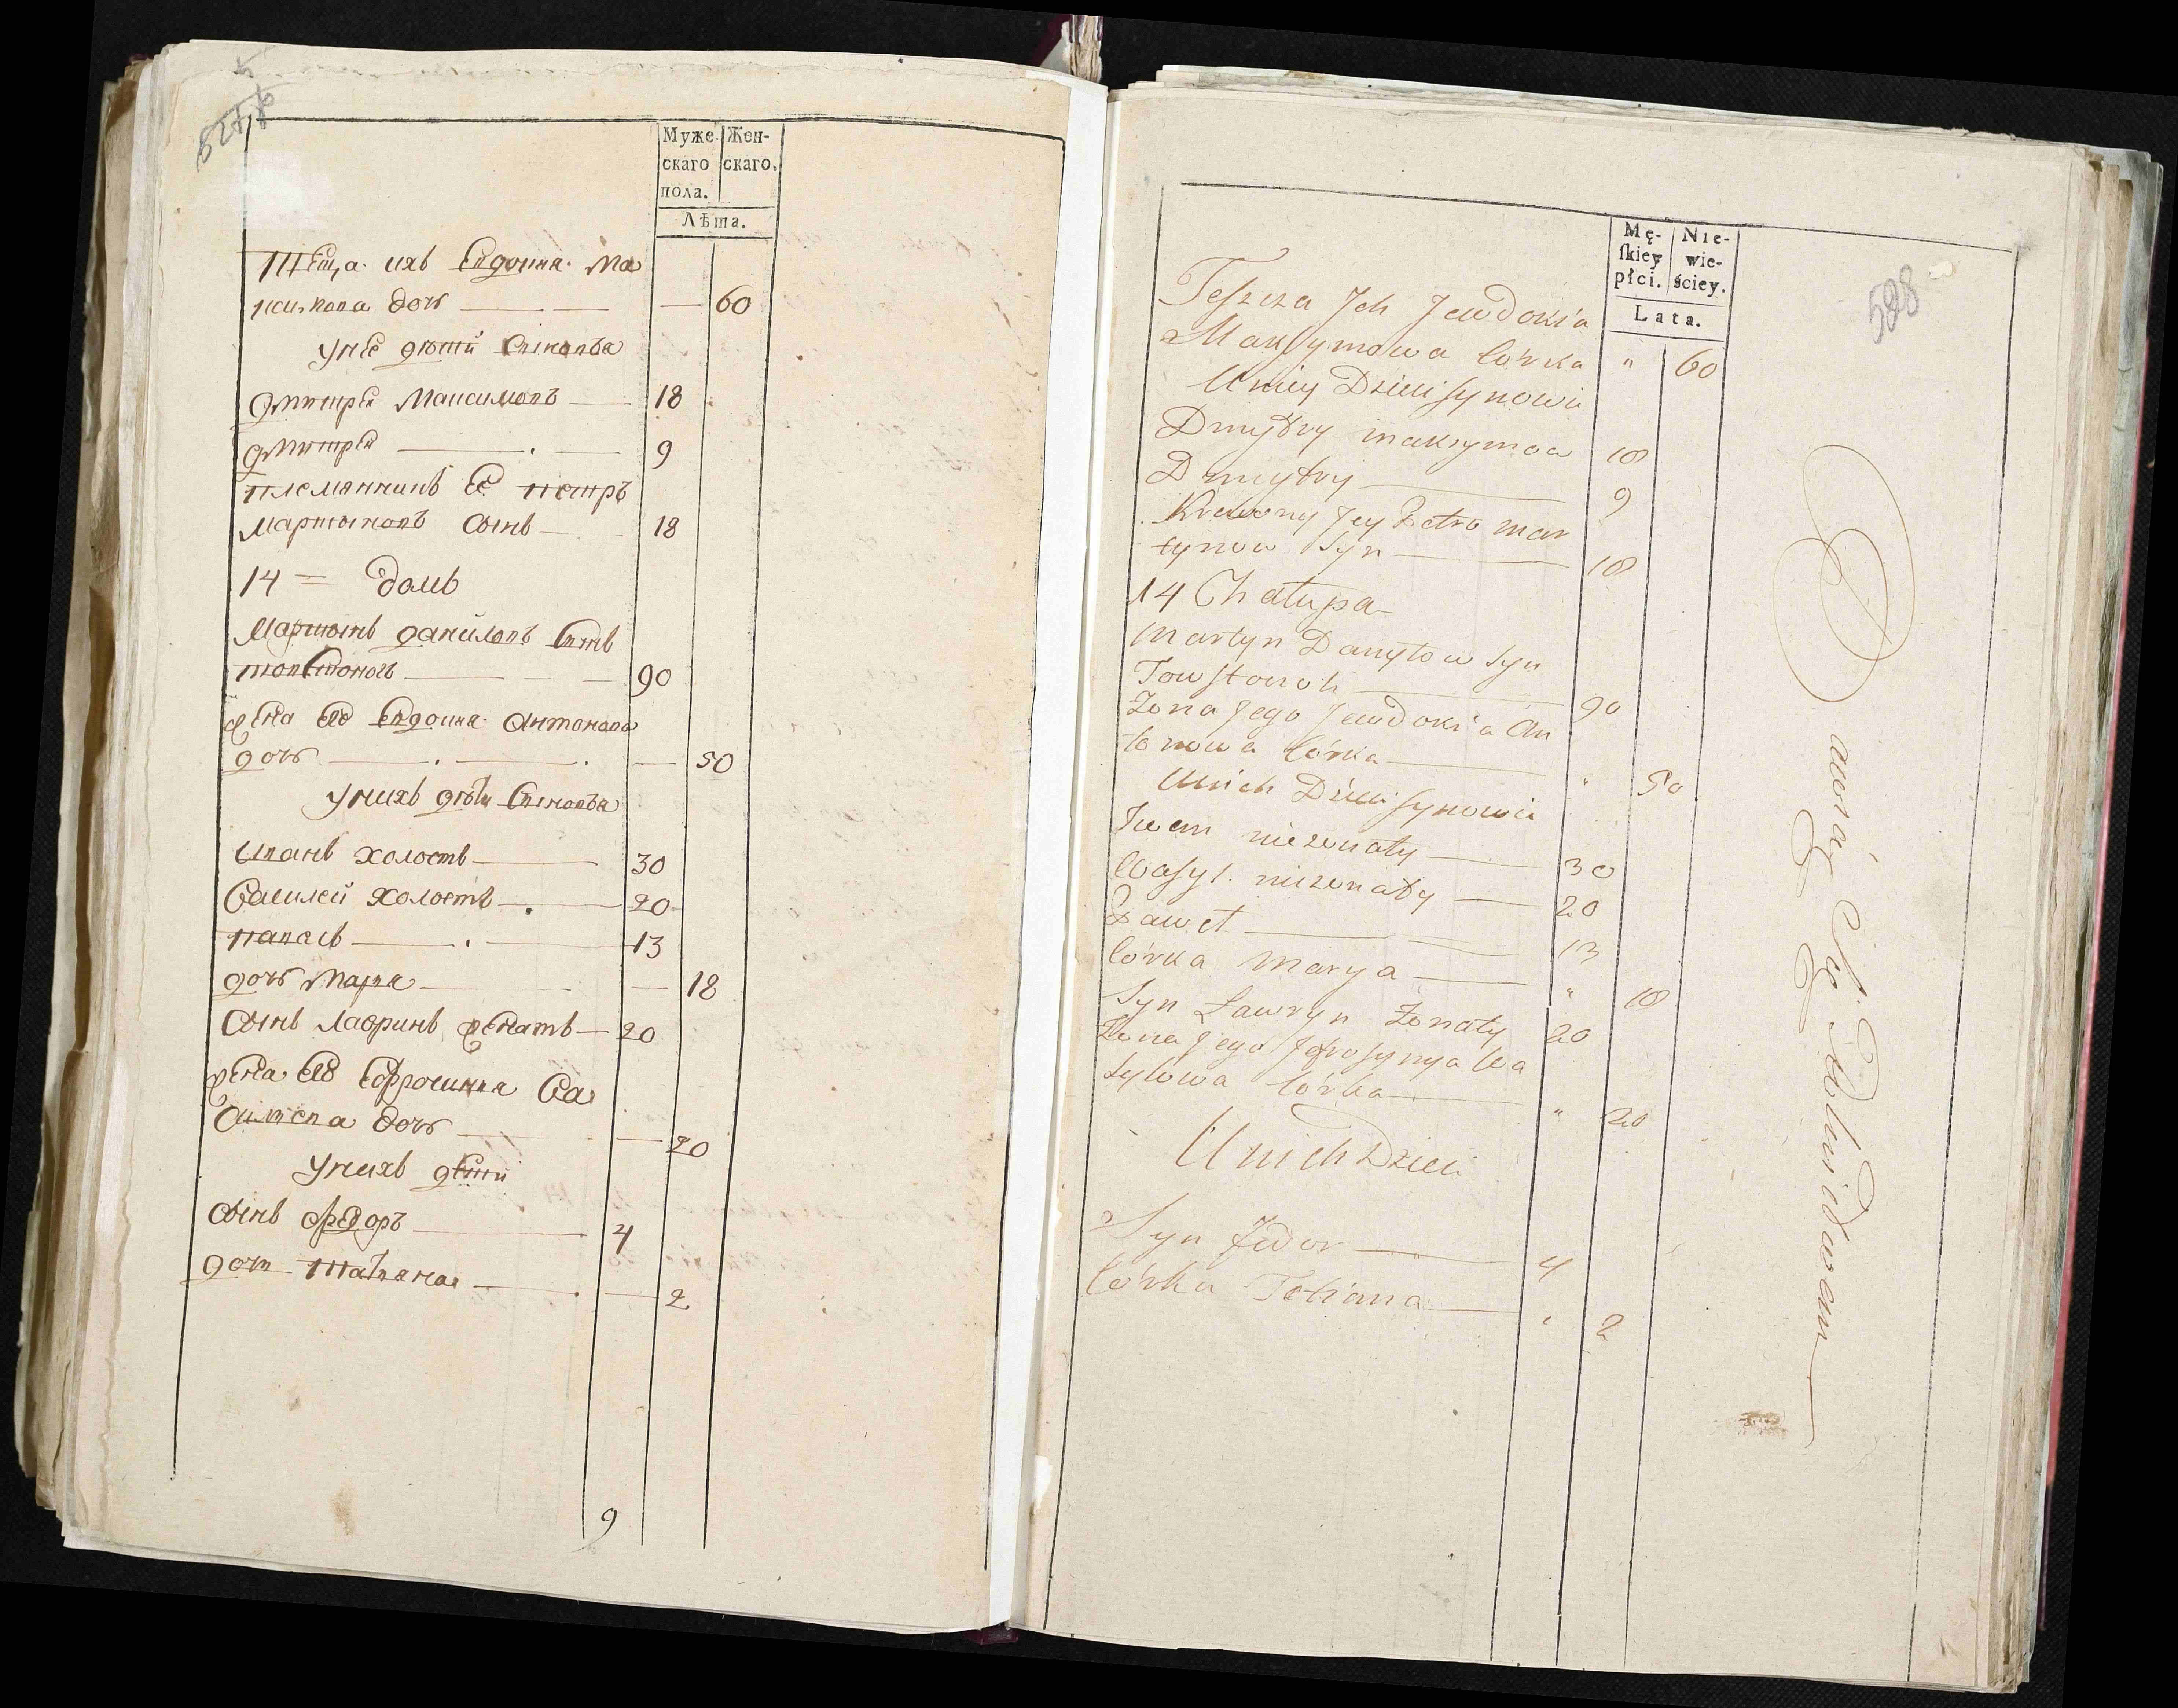 Муже-
скаго
пола.
Жен-
скаго.
Лѣта.
Теща ихъ Евдокия Ма
ксимова дочь — — 60
У нее дѣти сыновья
Дмитрей Максимовъ — 18
Дмитрей — 9
племянникъ Ее петръ
мартыновъ сынъ — 18
14 = домъ
Мартынъ даниловъ сынъ
товстоногъ — 90
жена Его Евдокия Антонова
дочь — — 50
У нихъ дѣти сыновья
Иванъ холостъ — 30
Василей холостъ — 20
павелъ — 13
дочь Марья — — 18
сынъ лавринъ женатъ — 20
жена Его Ефросинья Ва
силиева дочь — — 20
У нихъ дети
сынъ федоръ — 4
дочь татьяна — — 2
9
588
Mę-
skiey
płci.
Nie-
wie-
ściey.
Lata.
Teszcza Jch Jewdokia
Maxymowa Córka " 60
U niey Dzieci synowie
Dmytry maxymow 18
Dmytry — 9
Krewny Jey Petro mar
tynow Syn — 18
14 Chałupa
Martyn Danyłow Syn
Towstonoh — 90
Żona Jego Jewdokia An
tonowa Córka — " 50
U nich Dzieci synowie
Iwan nieżonaty — 30
Wasyl nieżonaty — 20
Paweł — 13
Córka Marya — " 18
Syn Ławryn Żonaty 20
Żona Jego Jefrosynya Wa
sylowa Córka — " 20
U nich Dzieci
Syn Fedor — 4
Córka Tetiana — " 2